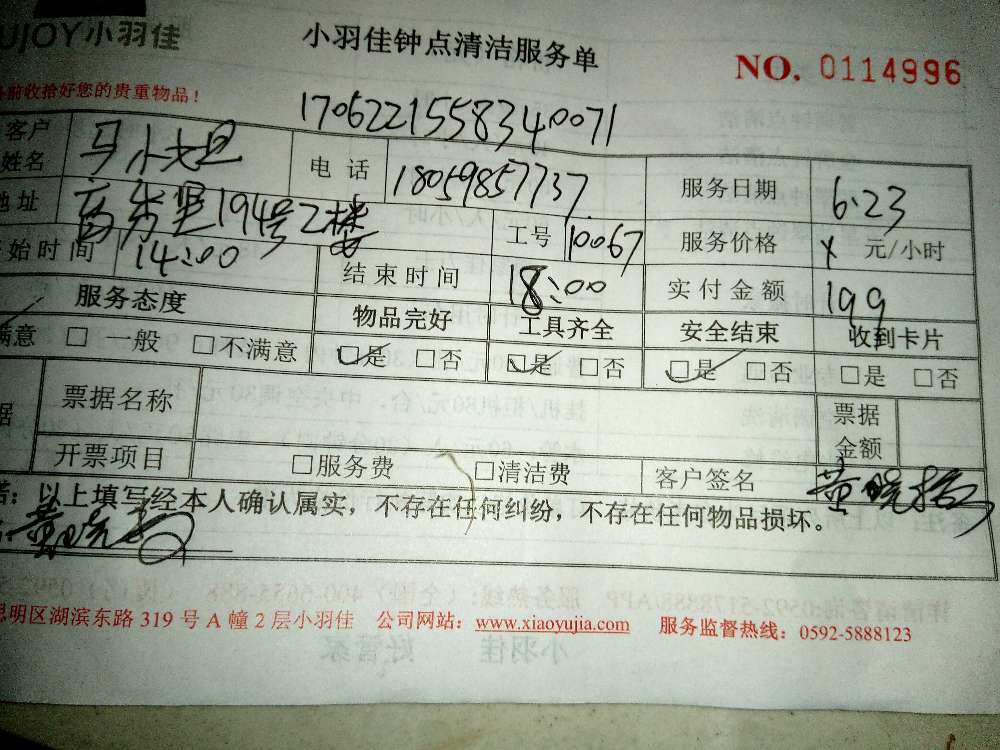 UJOY小羽佳 小羽佳钟点清洁服务单 NO. 0114996
前收拾好您的贵重物品！
1706221558340071
客户姓名 马小七旦 电话 18059857737 服务日期 6.23
地址 194号2楼 工号 10067 服务价格 元/小时
始时间 14:00 结束时间 18:00 实付金额 199
服务态度 物品完好 工具齐全 安全结束 收到卡片
满意 □一般 □不满意 □是 □否 □是 □否 □是 □否 □是 □否
据 票据名称 票据金额
开票项目 □服务费 □清洁费 客户签名
：以上填写经本人确认属实，不存在任何纠纷，不存在任何物品损坏。
思明区湖滨东路 319 号 A 幢 2 层小羽佳 公司网站：www.xiaoyujia.com 服务监督热线：0592-5888123